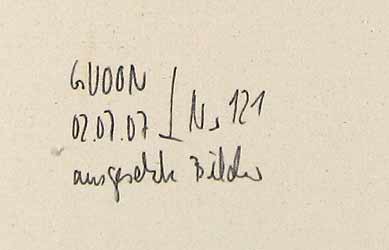 GUOON
02.07.07 | No 121
ausgesetzte Bilder